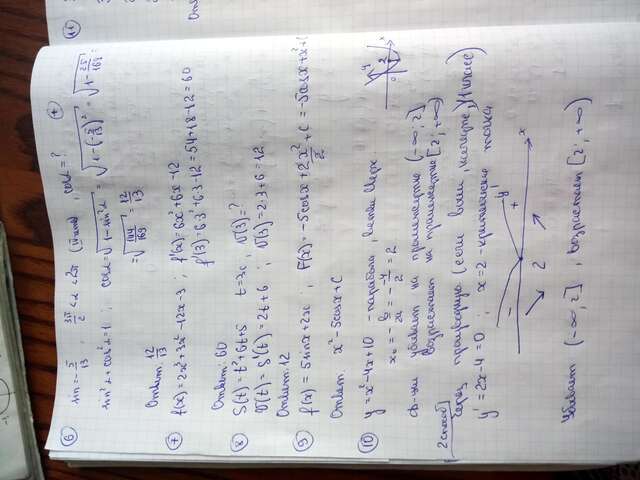 6 sin = -5/13, 3π/2 < α < 2π (IV четв), cosα = ?
sin²α + cos²α = 1 ; cosα = √(1 - sin²α) = √(1 - (-5/13)²) = √(1 - 25/169) =
= √(144/169) = 12/13
Ответ: 12/13
7 f(x) = 2x³ + 3x² - 12x - 3 ; f'(x) = 6x² + 6x - 12
f'(3) = 6·3² + 6·3 - 12 = 54 + 18 - 12 = 60
Ответ: 60
8 S(t) = t² + 6t + 5 t = 3c, V(3) = ?
V(t) = S'(t) = 2t + 6 ; V(3) = 2·3 + 6 = 12
Ответ: 12
9 f(x) = 5sinx + 2x ; F(x) = -5cosx + 2x²/2 + C = -5cosx + x² + C
Ответ: x² - 5cosx + C
10 y = x² - 4x + 10 - парабола, ветви вверх.
x₀ = -b/2a = - -4/2 = 2
y
x
0
2
Ф-ция убывает на промежутке (-∞; 2]
возрастает на промежутке [2; +∞)
2 способ
Через производную (если
11 класс)
y' = 2x - 4 = 0 ; x = 2 - критическая точка
y'
- + x
2
Убывает (-∞; 2], возрастает [2; +∞)
11